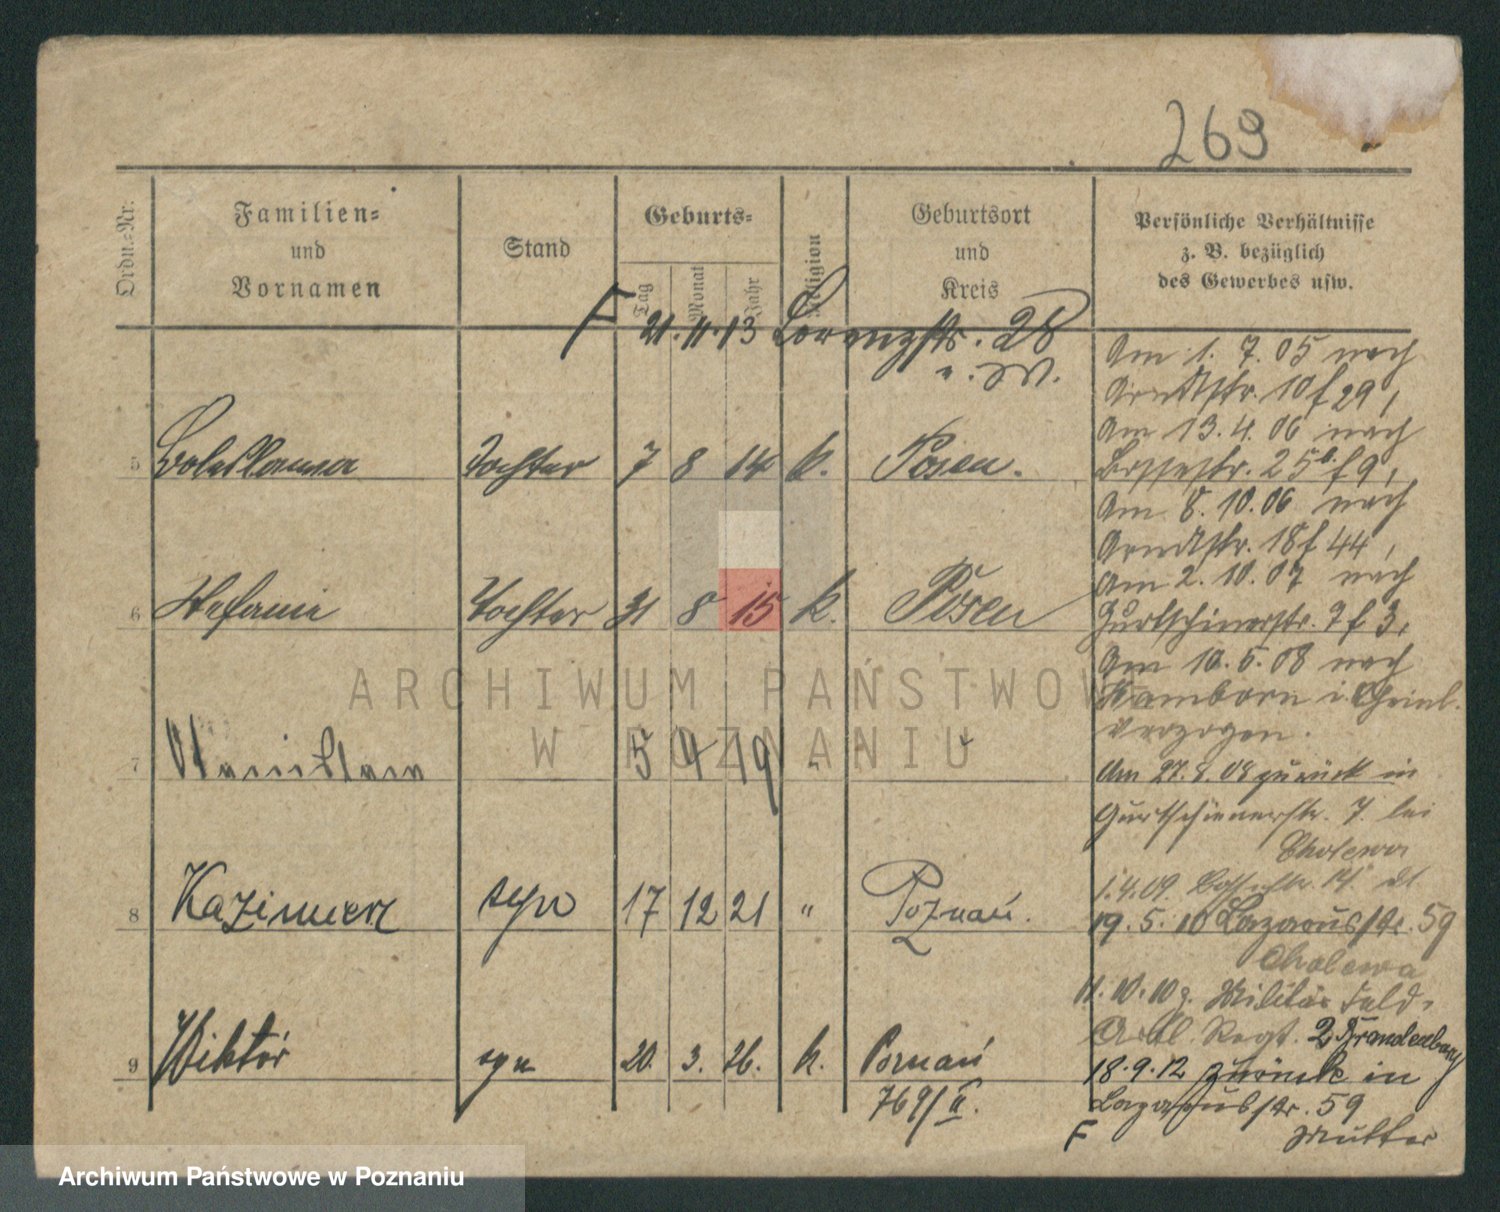 269
Ordn.-Nr.
Familien-
und
Vornamen
Stand
Geburts-
Tag
Monat
Jahr
Religion
Geburtsort
und
Kreis
Persönliche Verhältnisse
z. B. bezüglich
des Gewerbes usw.
F 21. 11. 13 Lorenzstr. 28
5 Boleslawa Tochter 7 8 14 k. Posen.
6 Stefanie Tochter 31 8 15 k. Posen
7 5 4 19 "
8 Kazimierz syn 17 12 21 " Poznań.
9 Wiktor syn 20. 3. 26. k. Poznań
769/II.
Am 1. 7. 05 nach
Arndtstr. 10 f 29,
Am 13. 4. 06 nach
25 b. f 9,
Am 8. 10. 06 nach
Arndtstr. 18 f 44,
Am 2. 10. 07 nach
Gurtschinerstr. 7 f 3,
Am 10. 5. 08 nach
Hamborn i. Rheinl.
verzogen.
Am 27. 8. 08 zurück in
Gurtschinerstr. 7. bei
Cholewa
1. 4. 09.
19. 5. 10 Lazarusstr. 59
Cholewa
11. 10. 10 z. Militär Feld-
Artl. Regt. 2 Brandenburg
18. 9. 12 zurück in
Lazarusstr. 59
F Mutter
ARCHIWUM PAŃSTWOWE
W POZNANIU
Archiwum Państwowe w Poznaniu